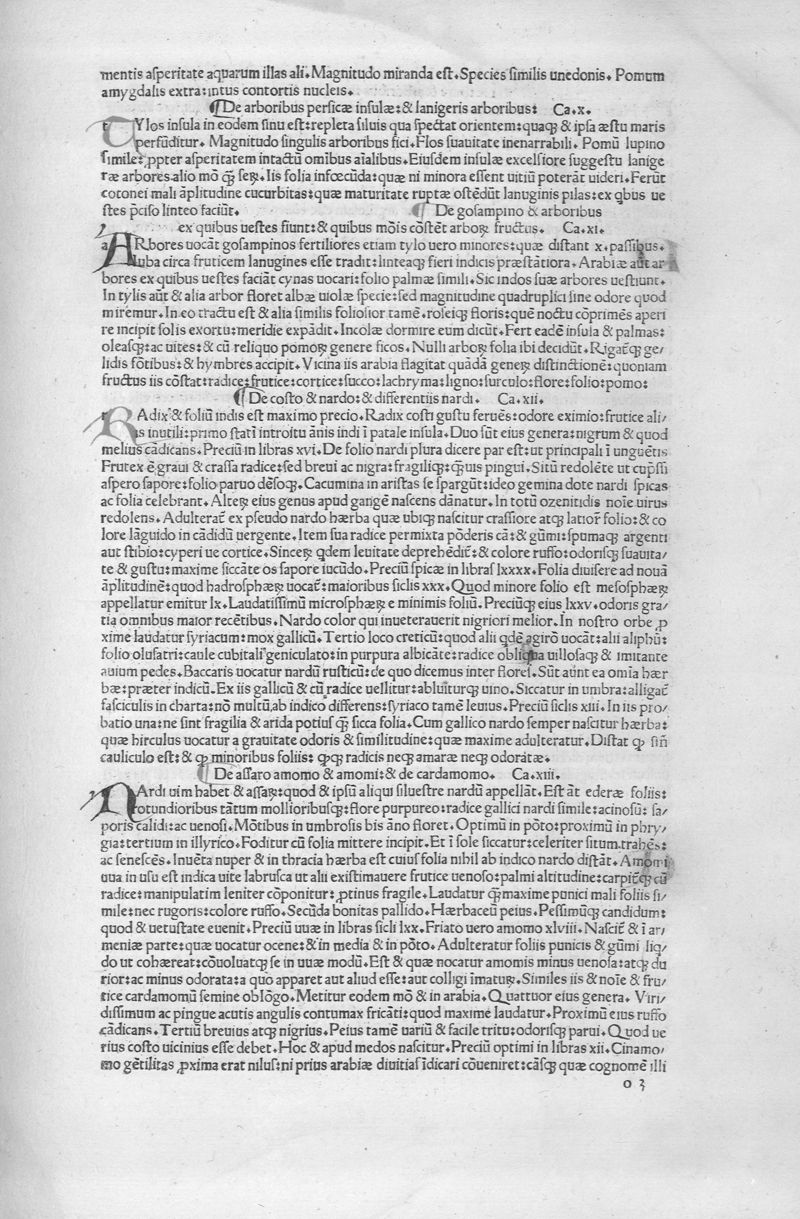 mentis aſperitate aquarum illas ali. Magnitudo miranda eſt. Species ſimilis unedonis. Pomum
amygdalis extra: intus contortis nucleis.
¶ De arboribus perſicæ inſulæ: & lanigeris arboribus: Ca. x.
TYlos inſula in eodem ſinu eſt: repleta ſiluis qua ſpectat orientem: quaqꝫ & ipſa æſtu maris
perfūditur. Magnitudo ſingulis arboribus fici. Flos ſuauitate inenarrabili. Pomū lupino
ſimile: ꝓpter aſperitatem intactū omībus aīalibus. Eiuſdem inſulæ excelſiore ſuggeſtu lanige
ræ arbores alio mō ꝙ̄ ſeꝝ. Iis folia infœcūda: quæ ni minora eſſent uitiū poterāt uideri. Ferūt
cotonei mali āplitudine cucurbitas: quæ maturitate ruptæ oſtēdūt lanuginis pilas: ex qbus ue
ſtes p̄ciſo linteo faciūt. ¶ De goſampino & arboribus
ex quibus ueſtes fiunt: & quibus mōis cōſtēt arboꝝ fructus. Ca. xi.
aARbores uocāt goſampinos fertiliores etiam tylo uero minores: quæ diſtant x. paſſibus.
Iuba circa fruticem lanugines eſſe tradit: linteaqꝫ fieri indicis præſtātiora. Arabiæ aūt ar
bores ex quibus ueſtes faciāt cynas uocari: folio palmæ ſimili. Sic indos ſuæ arbores ueſtiunt.
In tylis aūt & alia arbor floret albæ uiolæ ſpecie: ſed magnitudine quadruplici ſine odore quod
miremur. In eo tractu eſt & alia ſimilis folioſior tamē. roſeiqꝫ floris: quē noctu cōprimēs aperi
re incipit ſolis exortu: meridie expādit. Incolæ dormire eum dicūt. Fert eadē inſula & palmas:
oleaſqꝫ: ac uites: & cū reliquo pomoꝝ genere ficos. Nulli arboꝝ folia ibi decidūt. Rigatᷓqꝫ ge/
lidis fōtibus: & hymbres accipit. Vicina iis arabia flagitat quādā geneꝝ diſtinctionē: quoniam
fructus iis cōſtat: radice: frutice: cortice: ſucco: lachryma: ligno: ſurculo: flore: folio: pomo:
¶ De coſto & nardo: & differentiis nardi. Ca. xii.
rRAdix & foliū indis eſt maximo precio. Radix coſti guſtu feruēs: odore eximio: frutice ali/
as inutili: primo ſtatī introitu ānis indi ī patale inſula. Duo ſūt eius genera: nigrum & quod
melius cādicans. Preciū in libras xvi. De folio nardi plura dicere par eſt: ut principali ī unguētis
Frutex ē graui & craſſa radice: ſed breui ac nigra: fragiliqꝫ: ꝙ̄uis pingui. Situ redolēte ut cupſſi
aſpero ſapore: folio paruo dēſoqꝫ. Cacumina in ariſtas ſe ſpargūt: ideo gemina dote nardi ſpicas
ac folia celebrant. Alteꝝ eius genus apud gangē naſcens dānatur. In totū ozenitidis noīe uirus
redolens. Adulterat̄ ex pſeudo nardo hærba quæ ubiqꝫ naſcitur craſſiore atqꝫ latior̄ folio: & co
lore lāguido in cādidū uergente. Item ſua radice permixta pōderis cā: & gūmi: ſpumaqꝫ argenti
aut ſtibio: cyperi ue cortice. Sinceꝝ qdem leuitate deprehēdit̄: & colore ruffo: odoriſqꝫ ſuauita/
te & guſtu: maxime ſiccāte os ſapore iucūdo. Preciū ſpicæ in libraſ lxxxx. Folia diuiſere ad nouā
āplitudinē: quod hadroſphæꝝ uocat̄: maioribus ſiclis xxx. Quod minore folio eſt meſoſphæꝝ
appellatur emitur lx. Laudatiſſimū microſphæꝝ e minimis foliū. Preciūqꝫ eius lxxv. odoris gra/
tia omnibus maior recētibus. Nardo color qui inueterauerit nigriori melior. In noſtro orbe ꝓ
xime laudatur ſyriacum: mox gallicū. Tertio loco creticū: quod alii qdē agirō uocāt: alii aliphū:
folio oluſatri: caule cubitali: geniculato: in purpura albicāte: radice obliqua uilloſaqꝫ & imitante
auium pedes. Baccaris uocatur nardū ruſticū: de quo dicemus inter floreſ. Sūt aūnt ea omīa hær
bæ: præter indicū. Ex iis gallicū & cū radice uellitur: abluiturqꝫ uino. Siccatur in umbra: alligat̄
faſciculis in charta: nō multū ab indico differens: ſyriaco tamē leuius. Preciū ſiclis xiii. In iis pro/
batio una: ne ſint fragilia & arida potiuſ ꝙ̄ ſicca folia. Cum gallico nardo ſemper naſcitur hærba:
quæ hirculus uocatur a grauitate odoris & ſimilitudine: quæ maxime adulteratur. Diſtat ꝙ ſiñ
cauliculo eſt: & ꝙ minoribus foliis: ꝙqꝫ radicis neqꝫ amaræ neqꝫ odoratæ.
¶ De aſſaro amomo & amomi: & de cardamomo. Ca. xiii.
nNArdi uim habet & aſſaꝝ: quod & ipſū aliqui ſilueſtre nardū appellāt. Eſt āt ederæ foliis:
rotundioribus tātum mollioribuſqꝫ: flore purpureo: radice gallici nardi ſimile: acinoſū: ſa/
poris calidi: ac uenoſi. Mōtibus in umbroſis bis āno floret. Optimū in pōto: proximū in phry/
gia: tertium in illyrico. Foditur cū folia mittere incipit. Et ī ſole ſiccatur: celeriter ſitum trahēs:
ac ſeneſcēs. Inuēta nuper & in thracia hærba eſt cuiuſ folia nihil ab indico nardo diſtāt. Amomi
uua in uſu eſt indica uite labruſca ut alii exiſtimauere frutice uenoſo: palmi altitudine: carpit̄qꝫ cū
radice: manipulatim leniter cōponitur: ꝓtinus fragile. Laudatur qꝫ maxime punici mali foliis ſi/
mile: nec rugoris: colore ruffo. Secūda bonitas pallido. Hærbaceū peius. Peſſimūqꝫ candidum:
quod & uetuſtate euenit. Preciū uuæ in libras ſicli lxx. Friato uero amomo xlviii. Naſcit̄ & ī ar/
meniæ parte: quæ uocatur ocene: & in media & in pōto. Adulteratur foliis punicis & gūmi liq/
do ut cohæreat: cōuoluatqꝫ ſe in uuæ modū. Eſt & quæ nocatur amomis minus uenoſa: atqꝫ du
rior: ac minus odorata: a quo apparet aut aliud eſſe: aut colligi īmatuꝝ. Similes iis & noīe & fru/
tice cardamomū ſemine oblōgo. Metitur eodem mō & in arabia. Quattuor eius genera. Viri/
diſſimum ac pingue acutis angulis contumax fricāti: quod maxime laudatur. Proximū eius ruffo
cādicans. Tertiū breuius atqꝫ nigrius. Peius tamē uariū & facile tritu: odoriſqꝫ parui. Quod ue
rius coſto uicinius eſſe debet. Hoc & apud medos naſcitur. Preciū optimi in libras xii. Cinamo/
mo gētilitas ꝓxima erat niluſ: ni prius arabiæ diuitiaſ īdicari cōueniret: cāſqꝫ quæ cognomē illi
o 3